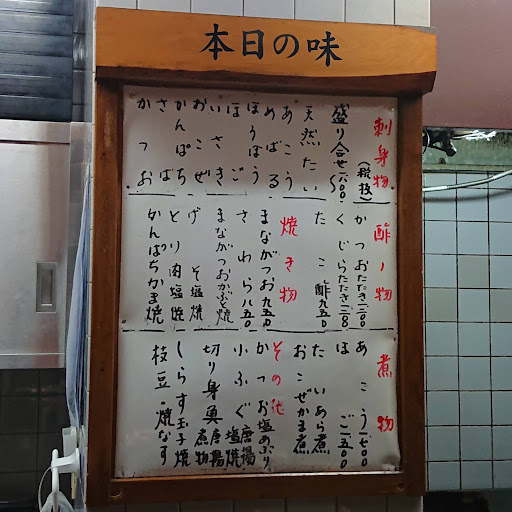 本日の味
刺身物
(税抜)
盛り合せ一八〇〇〜
天然たい
あこう
めばる
ほうぼう
ほご
いさき
おこぜ
かんぱち
さわら
かつお
酢ノ物
かつおたたき一二〇〇
くじらたたき一二八〇
たこ酢九五〇
焼き物
まながつお九五〇
さわら八五〇
まながつおかぶと焼
げそ塩焼
とり肉塩焼
かんぱちかま焼
煮物
あこう一七〇〇
ほご一五〇〇
たいあら煮
おこぜかま煮
その他
かつお塩あぶり
小ふぐ唐揚 塩焼
切り身奥唐揚 煮物
しらす玉子焼
枝豆・焼なす